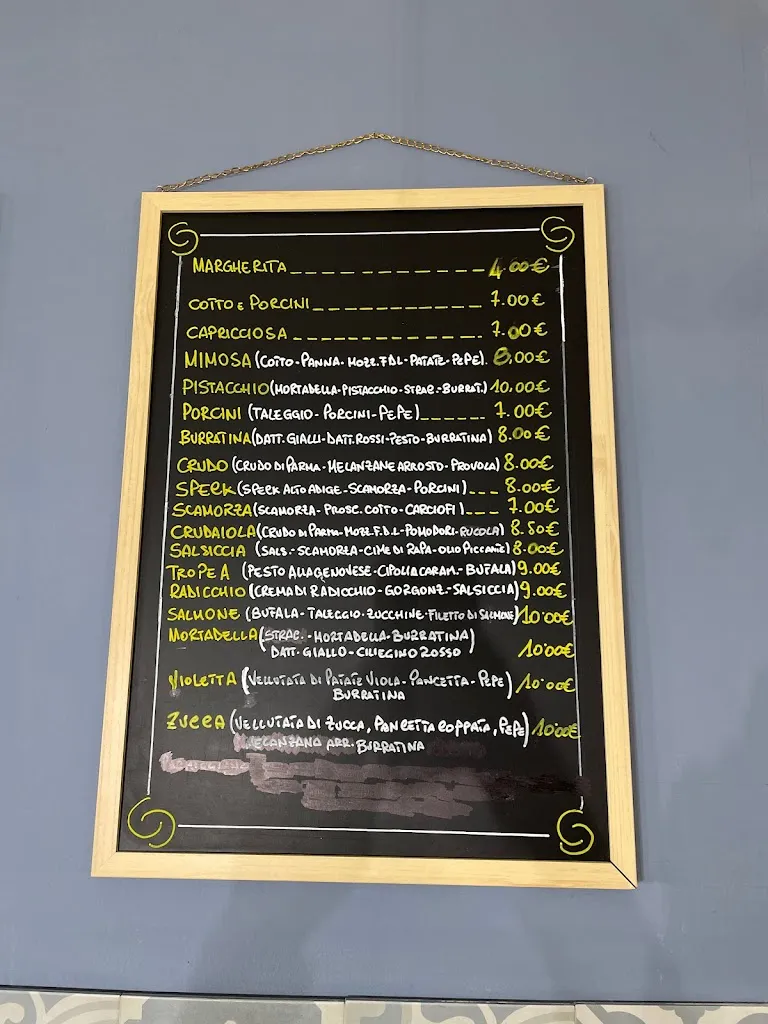 MARGHERITA 4.00€
COTTO E PORCINI 7.00€
CAPRICCIOSA 7.00€
MIMOSA (COTTO-PANNA-MOZZ.F.D.L-PATATE-PEPE). 8.00€
PISTACCHIO (MORTADELLA-PISTACCHIO-STRAC.-BURRAT.) 10.00€
PORCINI (TALEGGIO-PORCINI-PEPE) 7.00€
BURRATINA (DATT. GIALLI-DATT. ROSSI-PESTO-BURRATINA) 8.00€
CRUDO (CRUDO DI PARMA-MELANZANE ARROSTO-PROVOLA) 8.00€
SPECK (SPECK ALTO ADIGE-SCAMORZA-PORCINI) 8.00€
SCAMORZA (SCAMORZA-PROSC. COTTO-CARCIOFI) 7.00€
CRUDAIOLA (CRUDO DI PARMA-MOZZ.F.D.L-POMODORI-RUCOLA) 8.50€
SALSICCIA (SALS.-SCAMORZA-CIME DI RAPA-OLIO PICCANTE) 8.00€
TROPEA (PESTO ALLA GENOVESE-CIPOLLA CARAM.-BUFALA) 9.00€
RADICCHIO (CREMA DI RADICCHIO-GORGONZ-SALSICCIA) 9.00€
SALMONE (BUFALA-TALEGGIO-ZUCCHINE-FILETTO DI SALMONE) 10.00€
MORTADELLA (STRAC.-MORTADELLA-BURRATINA)
DATT. GIALLO-CILIEGINO ROSSO 10.00€
VIOLETTA (VELLUTATA DI PATATE VIOLA-PANCETTA-PEPE) 10.00€
BURRATINA
ZUCCA (VELLUTATA DI ZUCCA, PANCETTA COPPATA, PEPE) 10.00€
MELANZANA ARR. BURRATINA